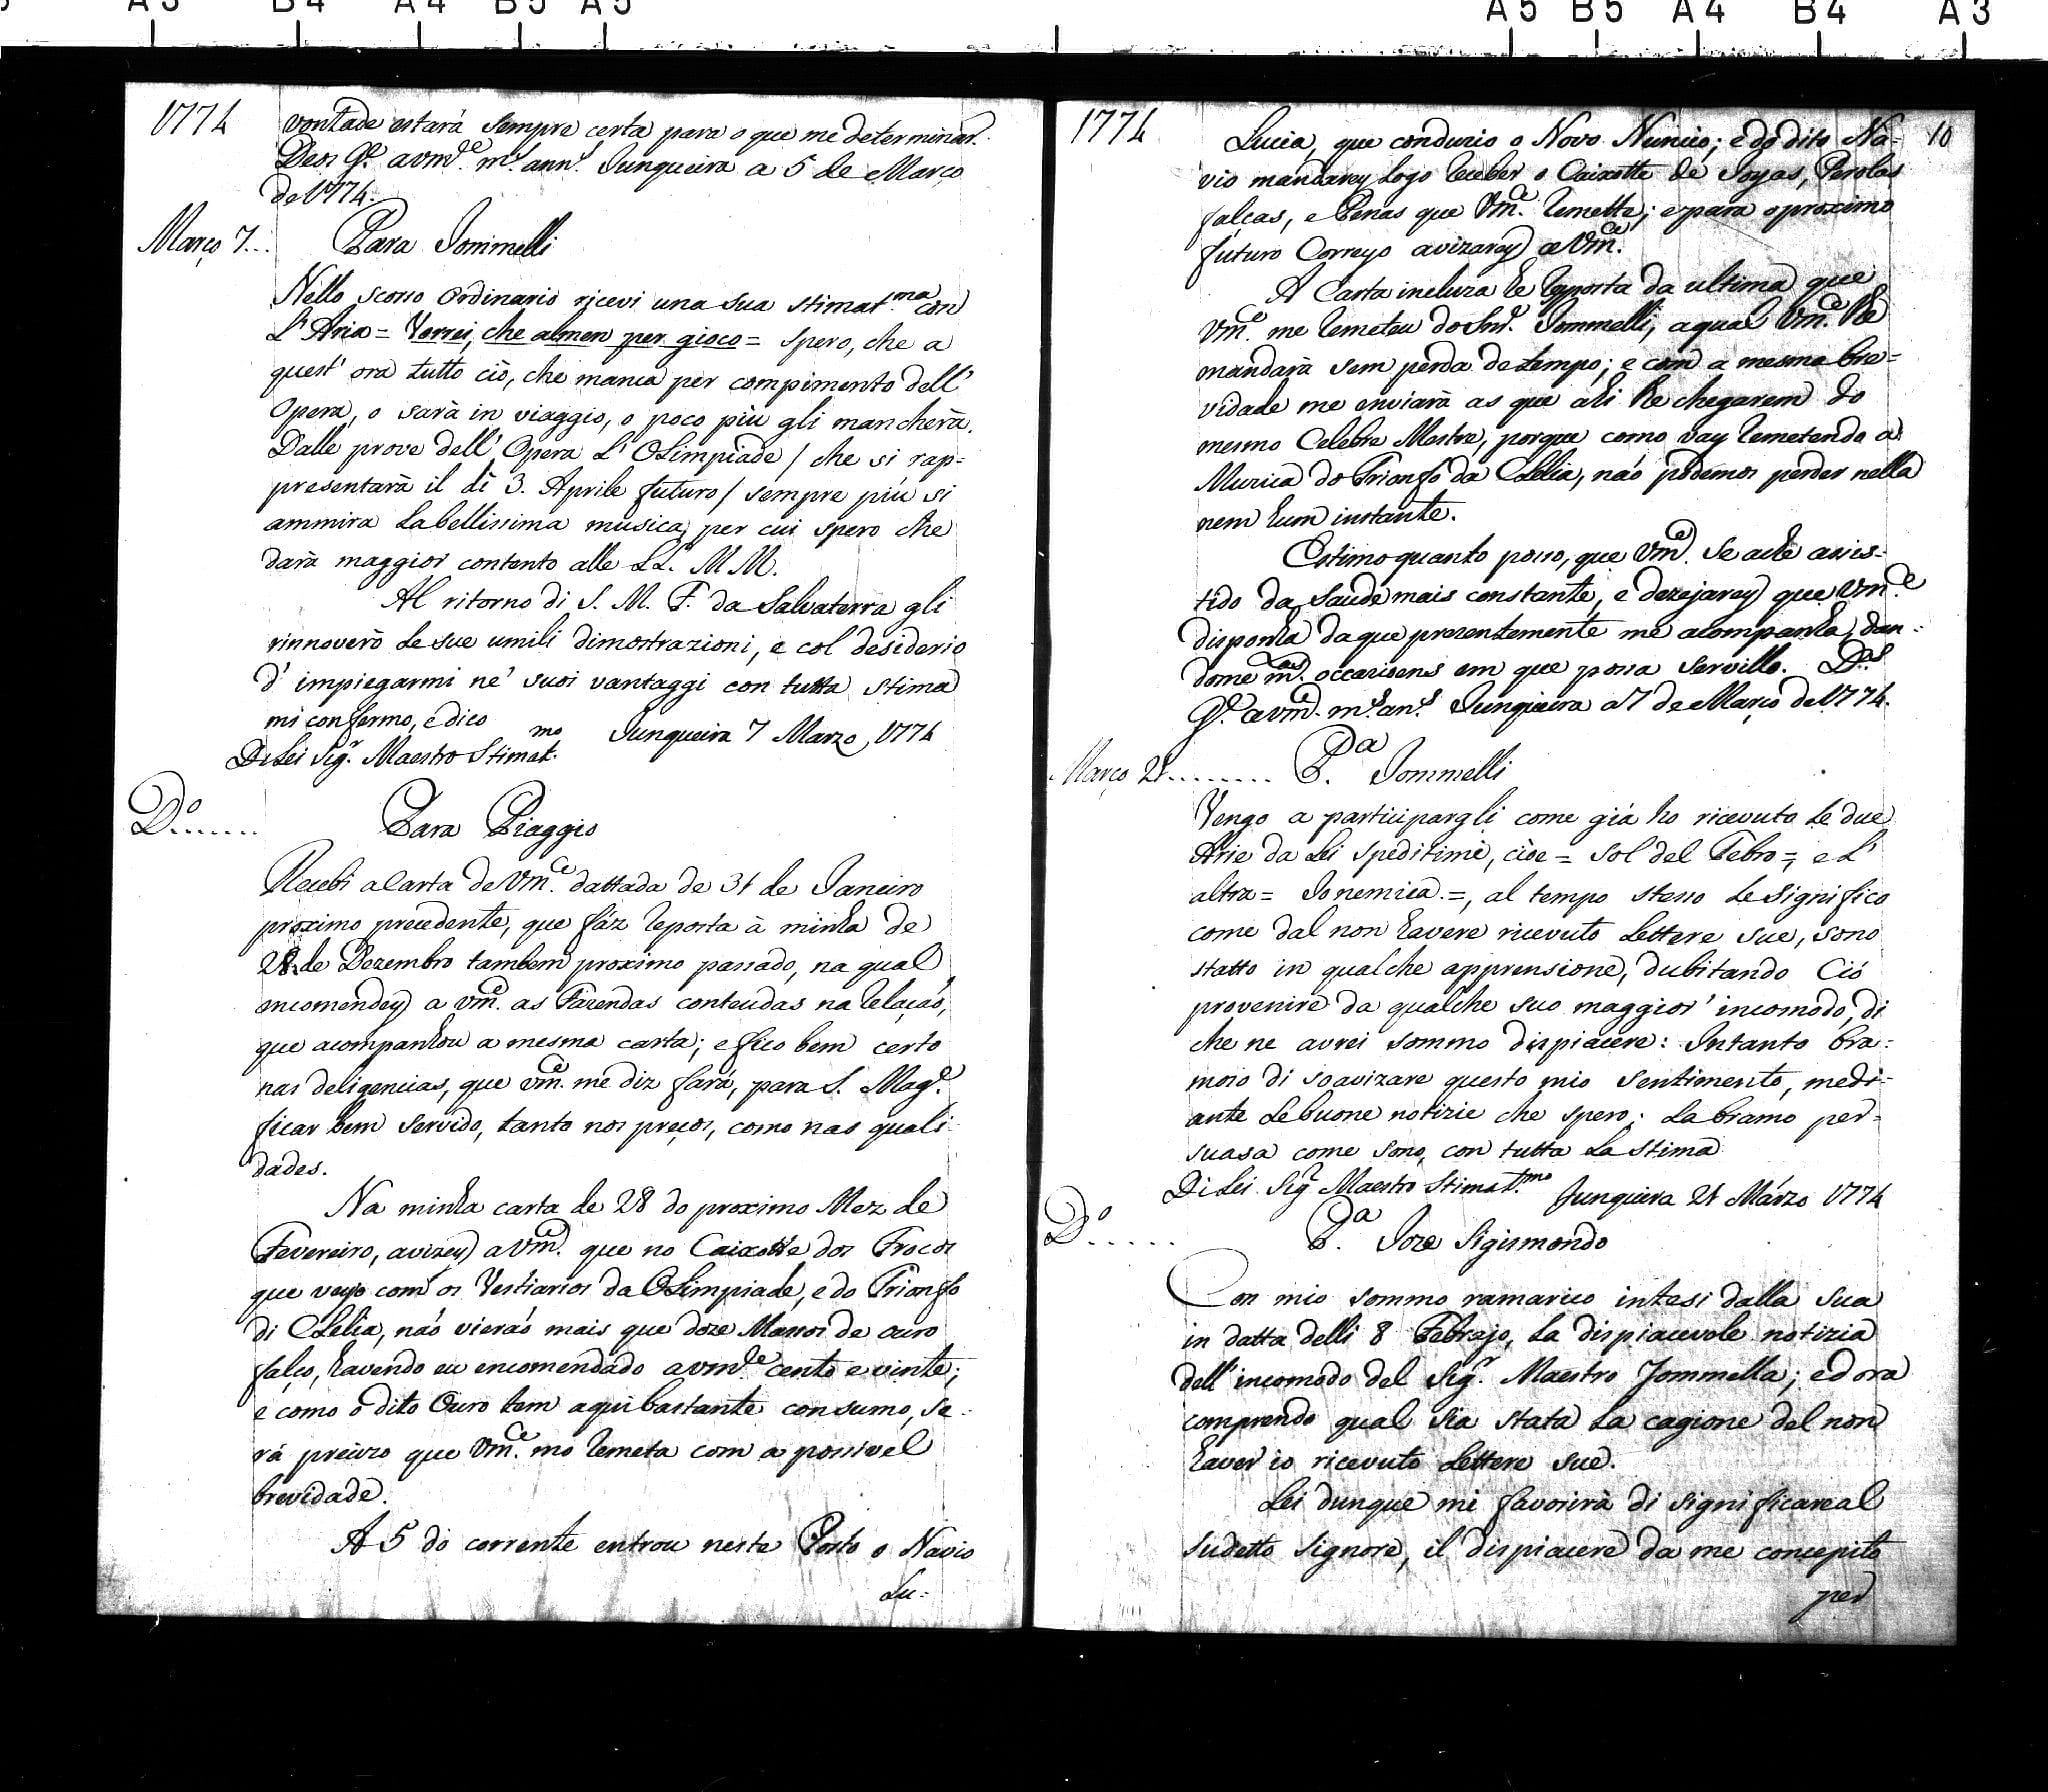 A3 B4 A4 B5 A5 A5 B5 A4 B4 A3
1774
vontade estará sempre certa para o que me determinar.
Deos g.e a vm.ce m.s ann.s Junqueira a 5 de Março
de 1774.
Março 7...
Para Jommelli
Nello scorso Ordinario ricevi una sua stimat.ma con
L'Aria = Vorrei, che almen per gioco = spero, che a
quest' ora tutto ciò, che manca per compimento dell'
Opera, o sarà in viaggio, o poco più gli mancherà.
Dalle prove dell' Opera L'Olimpiade / che si rap=
presentarà il dì 3. Aprile futuro / sempre più si
ammira la bellissima musica, per cui spero che
darà maggior contento alle LL. MM.
Al ritorno di S. M. F. da Salvaterra gli
rinnoverò le sue umili dimostrazioni, e col desiderio
d'impiegarmi ne' suoi vantaggi con tutta stima
mi confermo, e dico
Junqueira 7 Marzo 1774
Di Lei Sig.r Maestro Stimat.mo
D.o......
Para Piaggio
Recebi a Carta de Vm.ce dattada de 31 de Janeiro
proximo precedente, que fáz reposta à minha de
28 de Dezembro tambem proximo passado, na qual
encomendey a vm.ce as Fazendas conteudas na relação,
que acompanhou a mesma carta; e fico bem certo
nas deligencias, que vm.ce me diz fará, para S. Mag.e
ficar bem servido, tanto nos preços, como nas quali
dades.
Na minha carta de 28 do proximo Mez de
Fevereiro, avizey a Vm.ce que no Caixotte dos Frocos
que veyo com os Vestiarios da Olimpiade, e do Trionfo
di Clelia, não vierão mais que doze Massos de ouro
falço, havendo eu encomendado a vm.ce cento e vinte;
e como o dito Ouro tem aqui bastante consumo, se=
rá precizo que Vm.ce mo remeta com a possivel
brevidade.
A 5 do corrente entrou neste Porto o Navio
Lu=
1774
10
Lucia, que conduzio o Novo Nuncio; e do dito Na=
vio mandarey logo receber o Caixotte de Joyas, Perolas
falças, e Penas que Vm.ce remette; e para o proximo
futuro Correyo avizarey a Vm.ce
A Carta incluza he reposta da ultima que
Vm.ce me remeteu do Snr. Jommelli, a qual Vm.ce lhe
mandará sem perda de tempo; e com a mesma bre=
vidade me enviará as que ahi lhe chegarem do
mesmo Celebre Mestre, porque como vay remetendo a
Muzica do Trionfo da Clelia, não podemos perder nella
nem hum instante.
Estimo quanto posso, que Vm.ce se ache assis=
tido da Saude mais constante, e dezejarey que Vm.ce
disponha da que prezentemente me acompanha, dan=
dome m.tas occazioens em que possa servillo. D.s
G.e a vm.ce m.s an.s Junqueira a 7 de Março de 1774.
Março 21........
P.a Jommelli
Vengo a participargli come già ho ricevuto le due
Arie da Lei speditimi, cioe = Sol del Tebro =, e L'
altra = Io nemica. =, al tempo stesso le significo
come dal non havere ricevuto Lettere sue, sono
statto in qualche apprensione, dubitando Ciò
provenire da qualche suo maggior' incomodo, di
che ne avrei sommo dispiacere: Intanto bra=
moso di soavizare questo mio sentimento, medi=
ante le buone notizie che spero; la bramo per=
suasa come sono, con tutta la stima
Di Lei Sig.r Maestro Stimat.mo
Junqueira 21 Márzo 1774
D.o......
P.a Joze Sigismondo
Con mio sommo ramarico intesi dalla sua
in datta delli 8 Febrajo, la dispiacevole notizia
dell'incomodo del Sig.r Maestro Jommella; ed ora
comprendo qual sia stata la cagione del non
haver io ricevuto Lettere sue.
Lei dunque mi favorirà di significare al
sudetto Signore, il dispiacere da me concepito
per